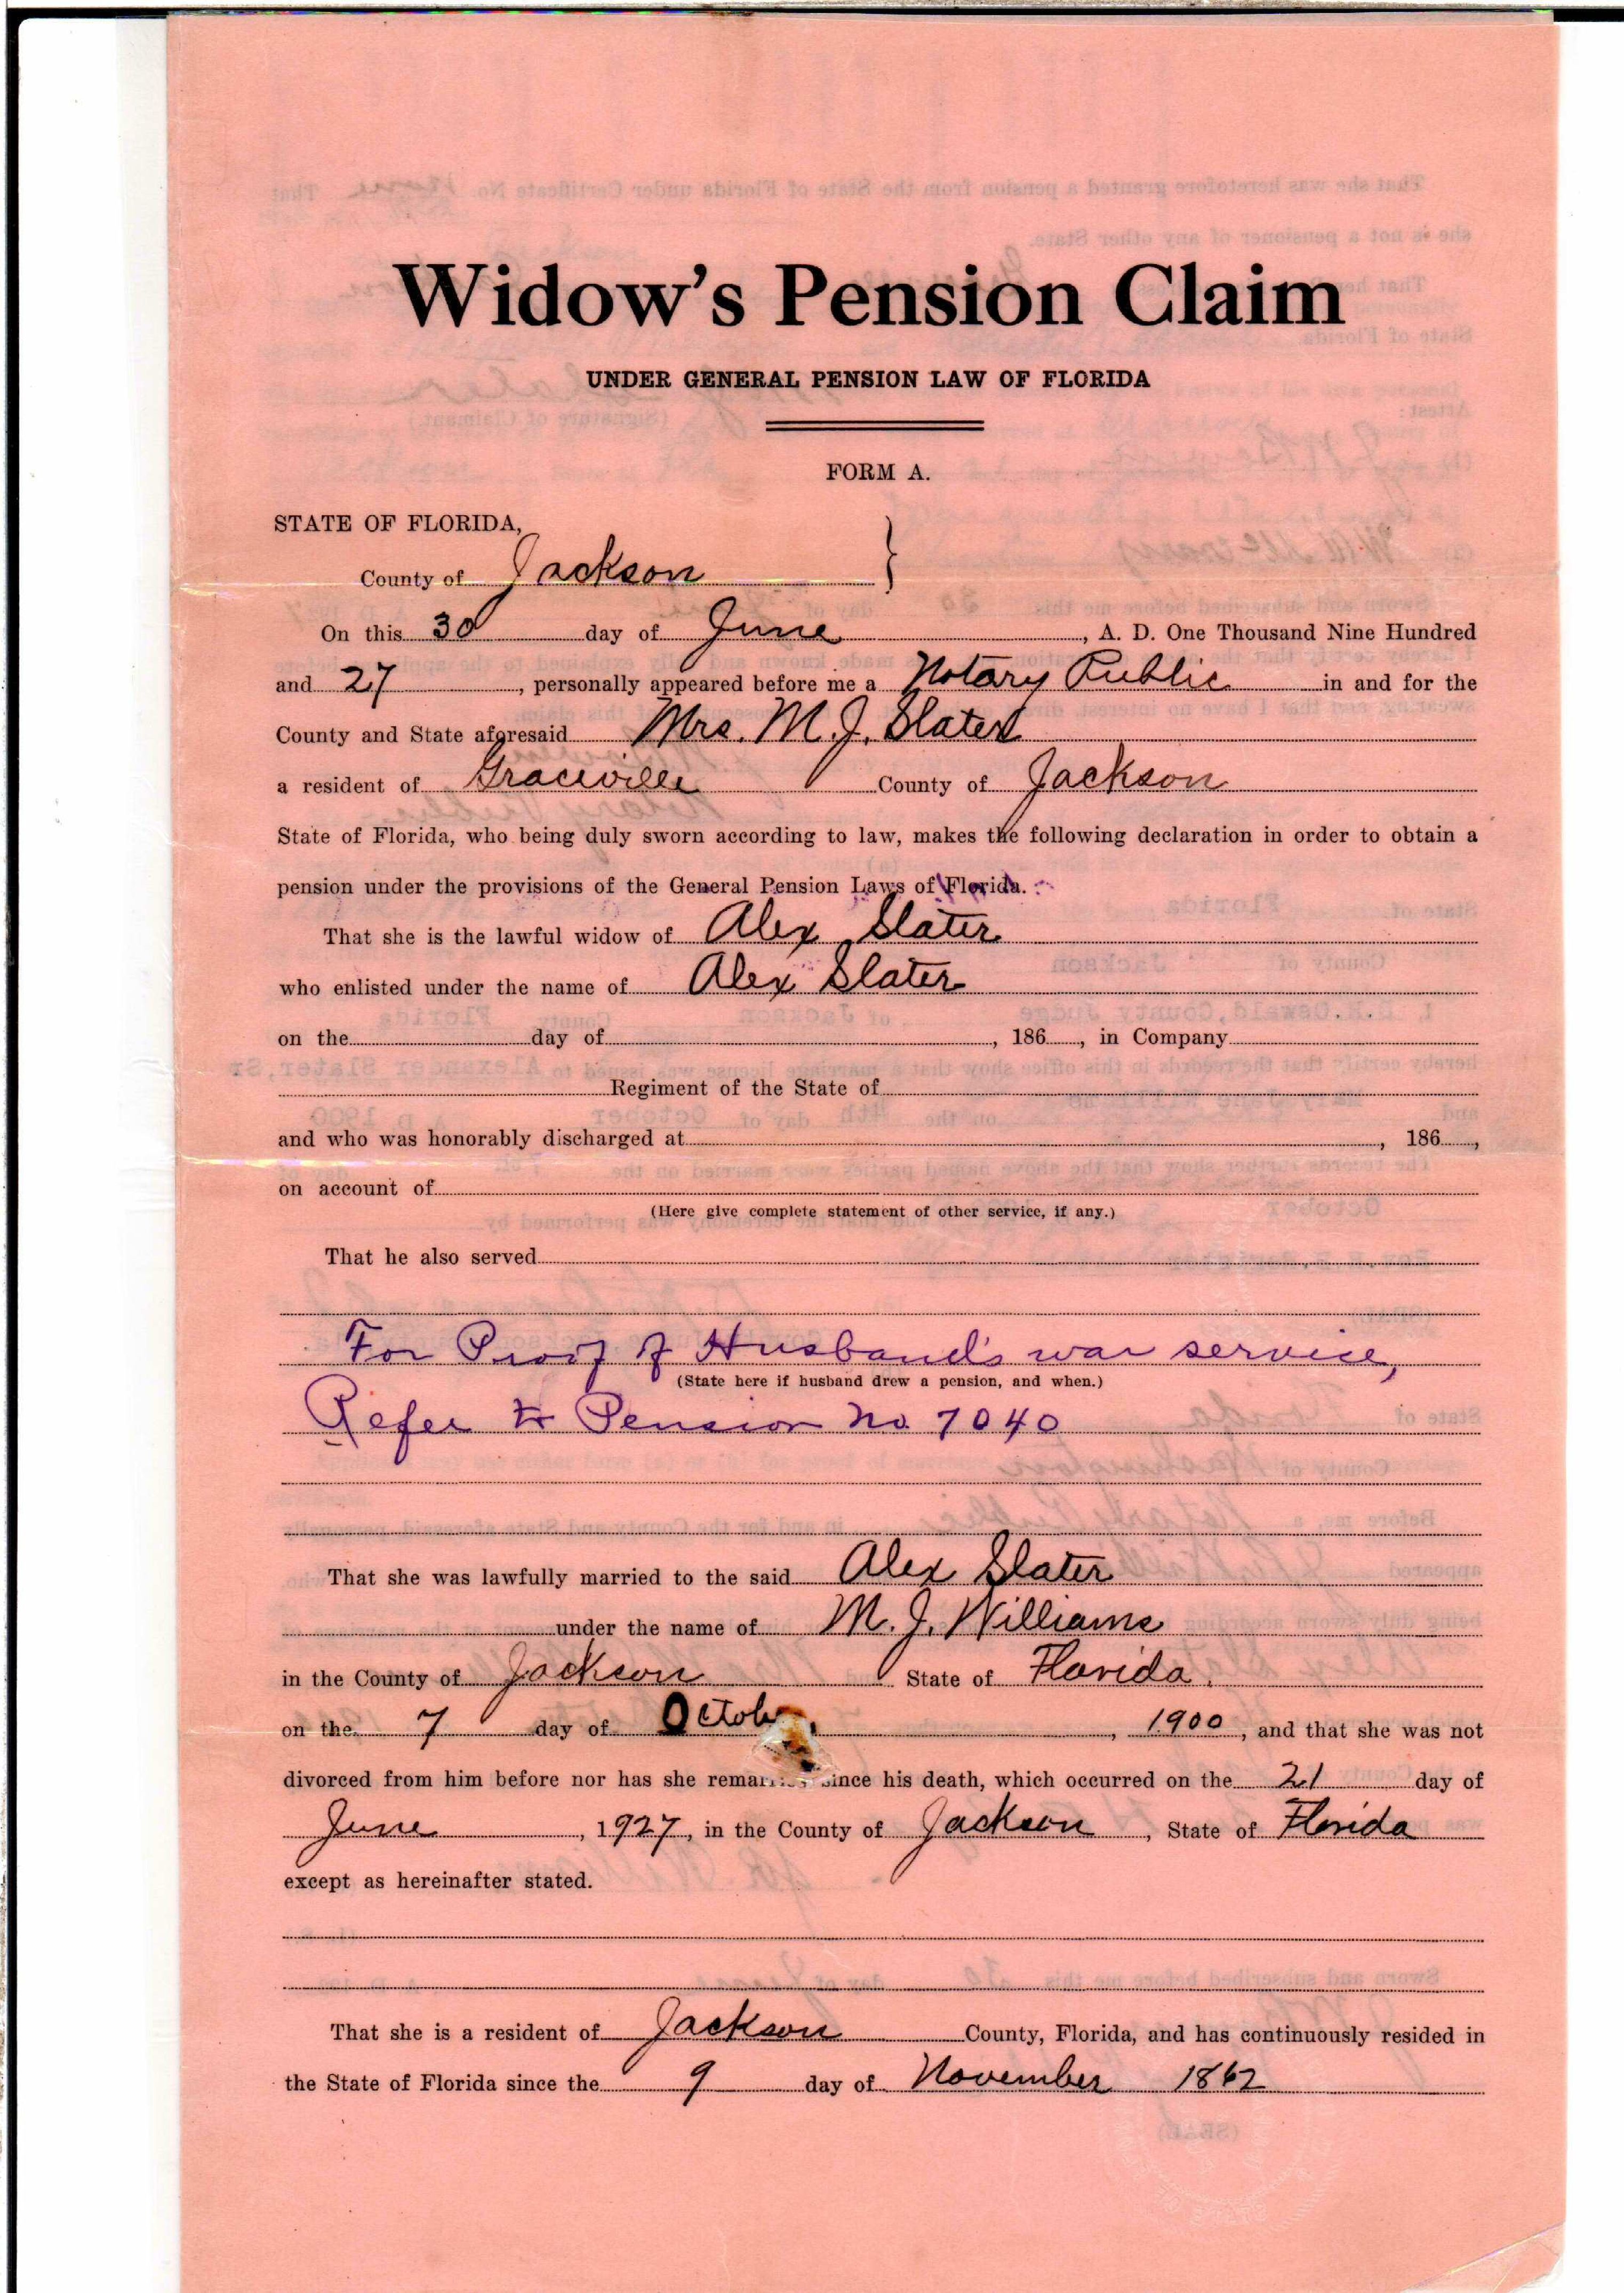 Widow's Pension Claim
UNDER GENERAL PENSION LAW OF FLORIDA
FORM A.
STATE OF FLORIDA,
County of Jackson }
On this 30 day of June, A. D. One Thousand Nine Hundred
and 27, personally appeared before me a Notary Public in and for the
County and State aforesaid Mrs. M. J. Slater
a resident of Graceville County of Jackson
State of Florida, who being duly sworn according to law, makes the following declaration in order to obtain a
pension under the provisions of the General Pension Laws of Florida.
That she is the lawful widow of Alex Slater
who enlisted under the name of Alex Slater
on the day of , 186 , in Company
Regiment of the State of
and who was honorably discharged at , 186 ,
on account of
(Here give complete statement of other service, if any.)
That he also served
For Proof of Husband's war service,
(State here if husband drew a pension, and when.)
Refer to Pension No. 7040
That she was lawfully married to the said Alex Slater
under the name of M. J. Williams
in the County of Jackson State of Florida.
on the 7 day of October, 1900, and that she was not
divorced from him before nor has she remarried since his death, which occurred on the 21 day of
June, 1927, in the County of Jackson, State of Florida
except as hereinafter stated.
That she is a resident of Jackson County, Florida, and has continuously resided in
the State of Florida since the 9 day of November 1862